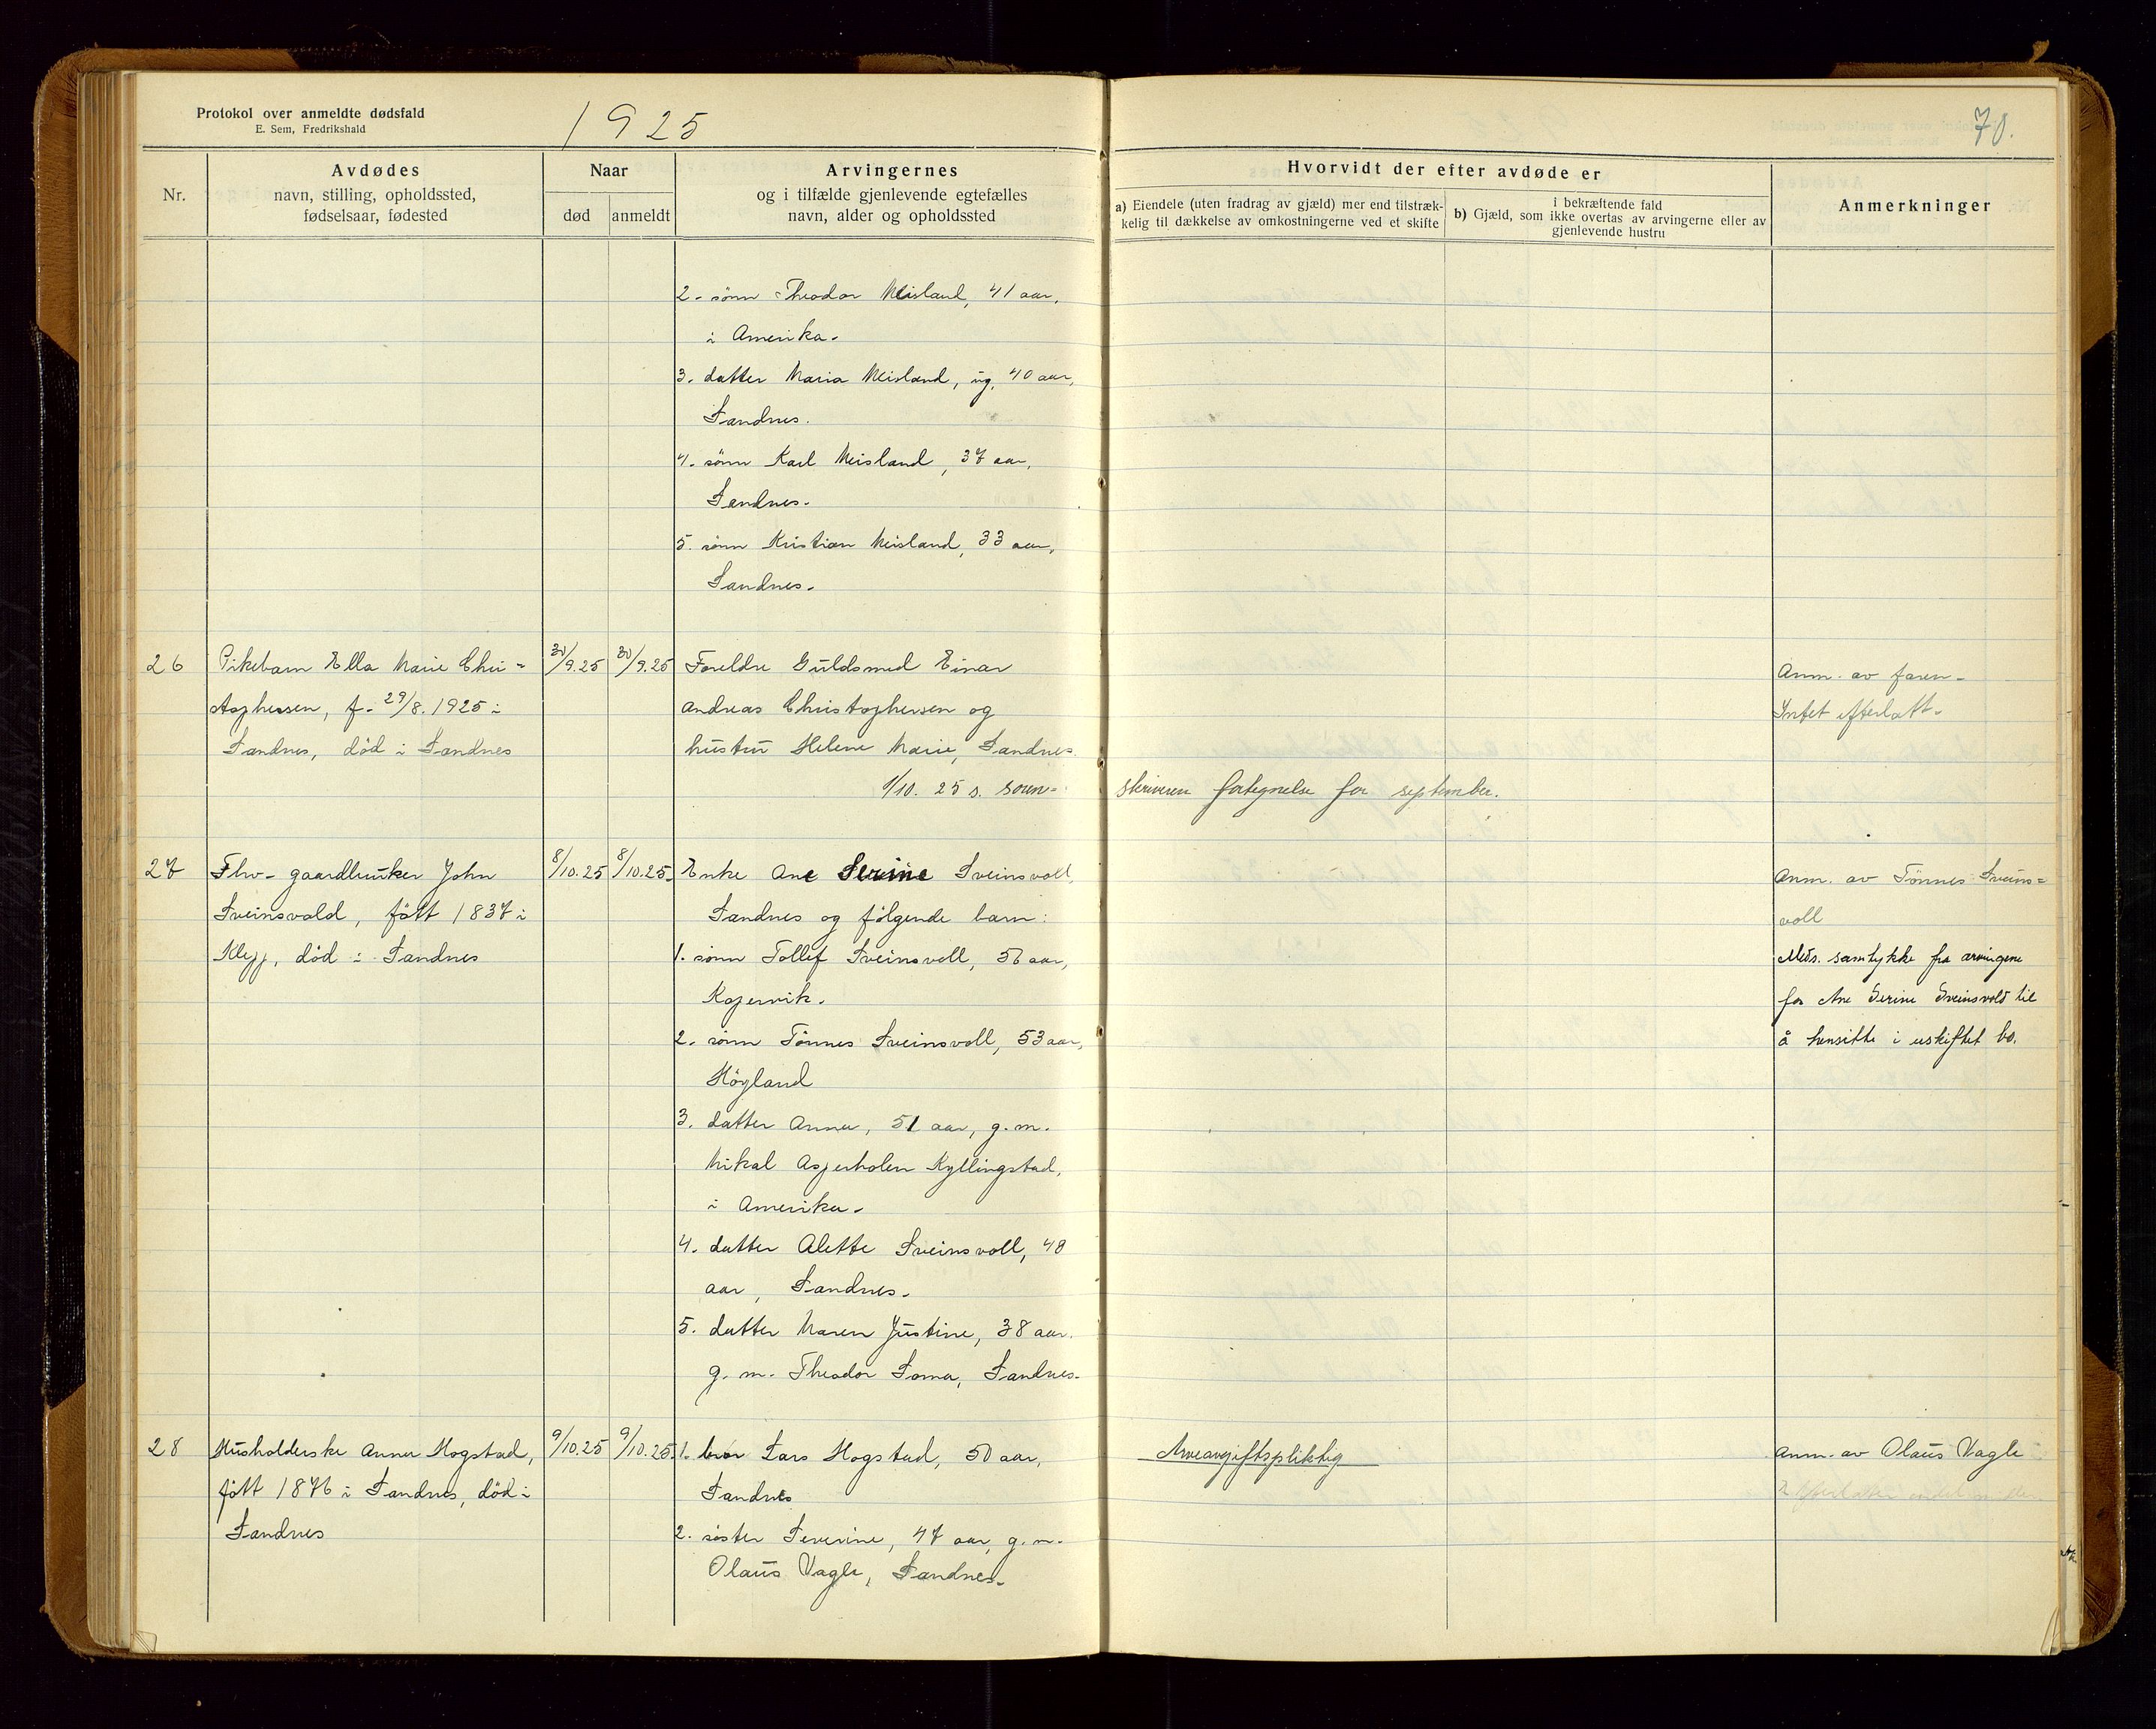 Protokol over anmeldte dødsfald
E. Sem, Fredrikshald
1925
70.
Nr.
Avdødes
navn, stilling, opholdssted,
fødselsaar, fødested
Naar
død
anmeldt
Arvingernes
og i tilfælde gjenlevende egtefælles
navn, alder og opholdssted
Hvorvidt der efter avdøde er
a) Eiendele (uten fradrag av gjæld) mer end tilstræk-
kelig til dækkelse av omkostningerne ved et skifte
i bekræftende fald
b) Gjæld, som ikke overtas av arvingerne eller av
gjenlevende hustru
Anmerkninger
2. sønn Theodor Meisland, 41 aar,
i Amerika.
3. datter Maria Meisland, ug, 40 aar,
Sandnes.
4. sønn Karl Meisland, 37 aar,
Sandnes.
5. sønn Kristian Meisland, 33 aar,
Sandnes.
26
Pikebarn Ella Marie Chri-
stophersen, f. 29/8.1925 i
Sandnes, død i Sandnes
30/9.25
30/9.25
Foreldre Guldsmed Einar
Andreas Christophersen og
hustru Helene Marie, Sandnes.
1/10. 25 s. soren-
skriveren fortegnelse for september.
Anm. av faren.
Intet efterlatt.
27
Fhv. gaardbruker John
Sveinsvold, født 1837 i
Klepp, død i Sandnes
8/10.25
8/10.25.
Enke Ane Serine Sveinsvoll,
Sandnes og følgende barn:
1. sønn Tollef Sveinsvoll, 56 aar,
Kopervik.
2. sønn Tønnes Sveinsvoll, 53 aar,
Høyland
3. datter Anna, 51 aar, g.m.
Mikal Asperholen Kyllingstad,
i Amerika.
4. datter Alette Sveinsvoll, 48
aar, Sandnes.
5. datter Maren Justine, 38 aar.
g. m. Theodor Soma, Sandnes.
Anm. av Tønnes Sveins-
voll
Medd. samtykke fra arvingene
for Ane Serine Sveinsvold til
å hensitte i uskiftet bo.
28
Husholderske Anna Hogstad,
født 1876 i Sandnes, død i
Sandnes
9/10.25
9/10.25.
1. bror Lars Hogstad, 50 aar,
Sandnes
2. søster Severine, 47 aar, g.m.
Olaus Vagle, Sandnes.
Arveavgiftspliktig
Anm. av Olaus Vagle